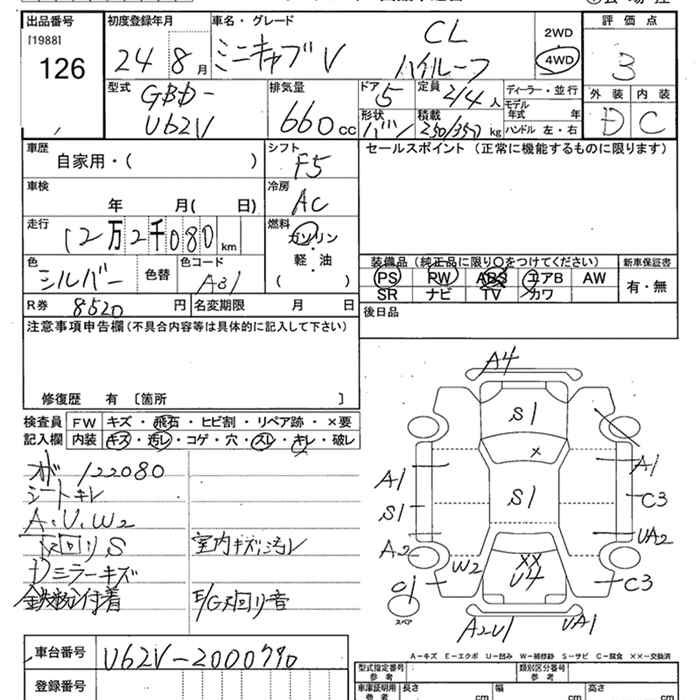 出品番号 初度登録年月 車名・グレード 評価点
[1988] 126
24 8月 ミニキャブV CL ハイルーフ 2WD 4WD 3
型式 GBD- U62V 排気量 660cc ドア 5 定員 2/4人 ディーラー・並行
形状 バン 積載 250/350kg モデル年式 年 ハンドル 左・右
外装 内装
D C
車歴 自家用・( ) シフト F5
セールスポイント (正常に機能するものに限ります)
車検 年 月( 日) 冷房 AC
走行 12万2千080km 燃料 ガソリン・軽・油 ( )
色 シルバー 色替 色コード A31
装備品 (純正品に限り○をつけてください) 新車保証書
PS PW ABS エアB AW 有・無
SR ナビ TV カワ
R券 8520円 名変期限 月 日
後日品
注意事項申告欄(不具合内容等は具体的に記入して下さい)
修復歴 有 〔箇所 〕
検査員記入欄 FW キズ・飛石・ヒビ割・リペア跡・×要
内装 キズ・汚レ・コゲ・穴・スレ・キレ・破レ
122080
シートキレ
A.U.W2
下回りS 室内キズ汚レ
Dミラーキズ
鉄粉付着 E/G下回り音
A4
S1
×
A1 S1 A1
S1 C3
A2 UA2
W2 XX U4 C3
スペア
A2U1 UA1
A-キズ E-エクボ U-凹み W-補修跡 S-サビ C-腐食 ××-交換済
車台番号 U62V-2000790
登録番号
型式指定番号 参考 類別区分番号 参考
車庫証明用 参考 長さ cm 幅 cm 高さ cm